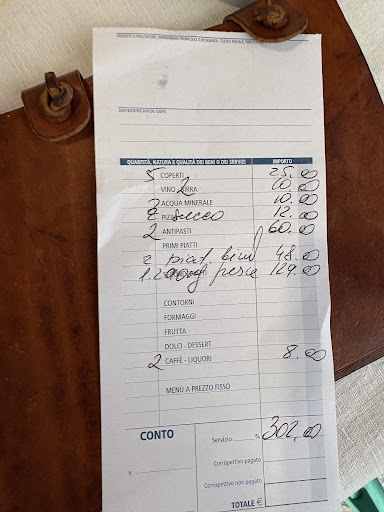 DATI IDENTIFICATIVI DEL CLIENTE
QUANTITÀ, NATURA E QUALITÀ DEI BENI O DEI SERVIZI IMPORTO
5 COPERTI 25.00
VINO 2 BIRRA 10.00
ACQUA MINERALE 10.00
12.00
2 ANTIPASTI 60.00
PRIMI PIATTI
2 piat. bimbi 48.00
1.200 g pesce 129.00
CONTORNI
FORMAGGI
FRUTTA
DOLCI - DESSERT
2 CAFFÈ - LIQUORI 8.00
MENU A PREZZO FISSO
CONTO
Servizio % 302,00
%
Corrispettivo pagato
Corrispettivo non pagato
TOTALE €